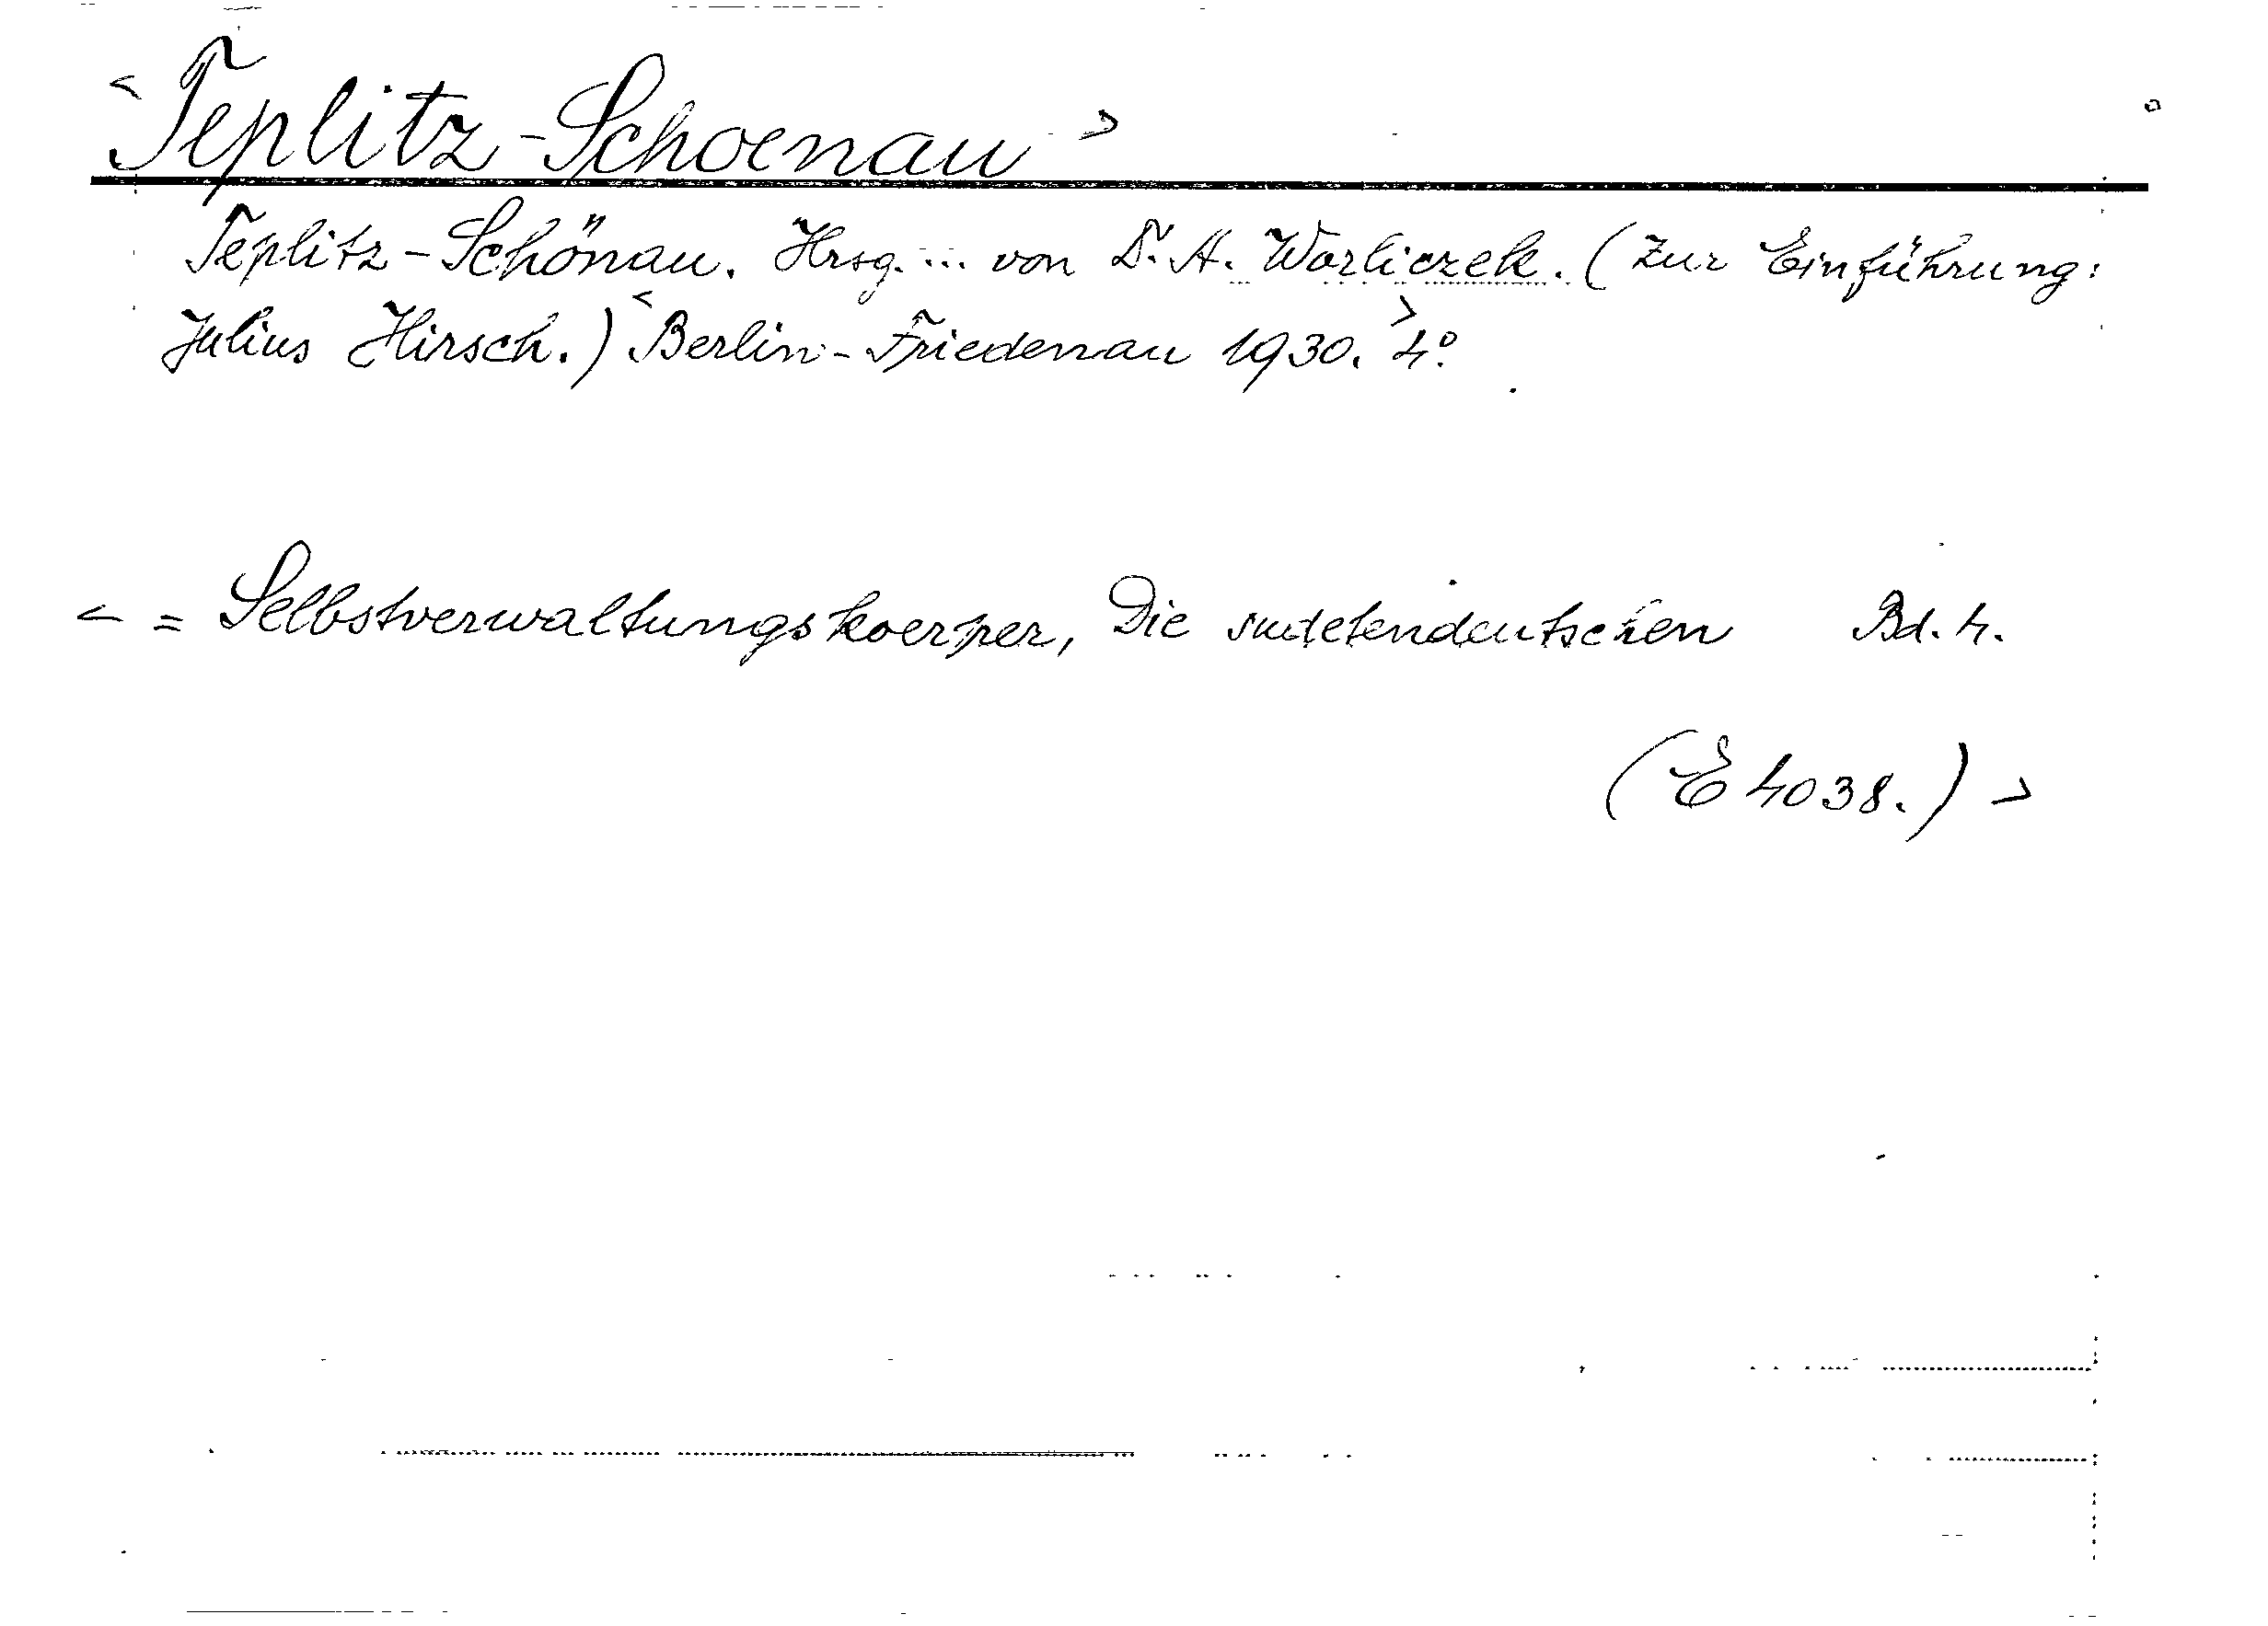 <Teplitz-Schoenau>
Teplitz-Schönau. Hrsg. ... von D. A. Worliczek. (Zur Einführung:
Julius Hirsch.) <Berlin-Friedenau 1930.> 4°.
< = Selbstverwaltungskoerper, Die sudetendeutschen Bd. 4.
(E 4038.) >